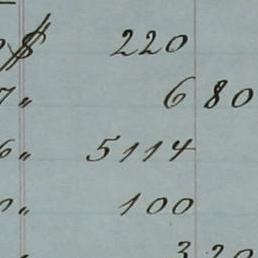 $ 220
7 " 6 80
6 " 5114
" 100
3 20